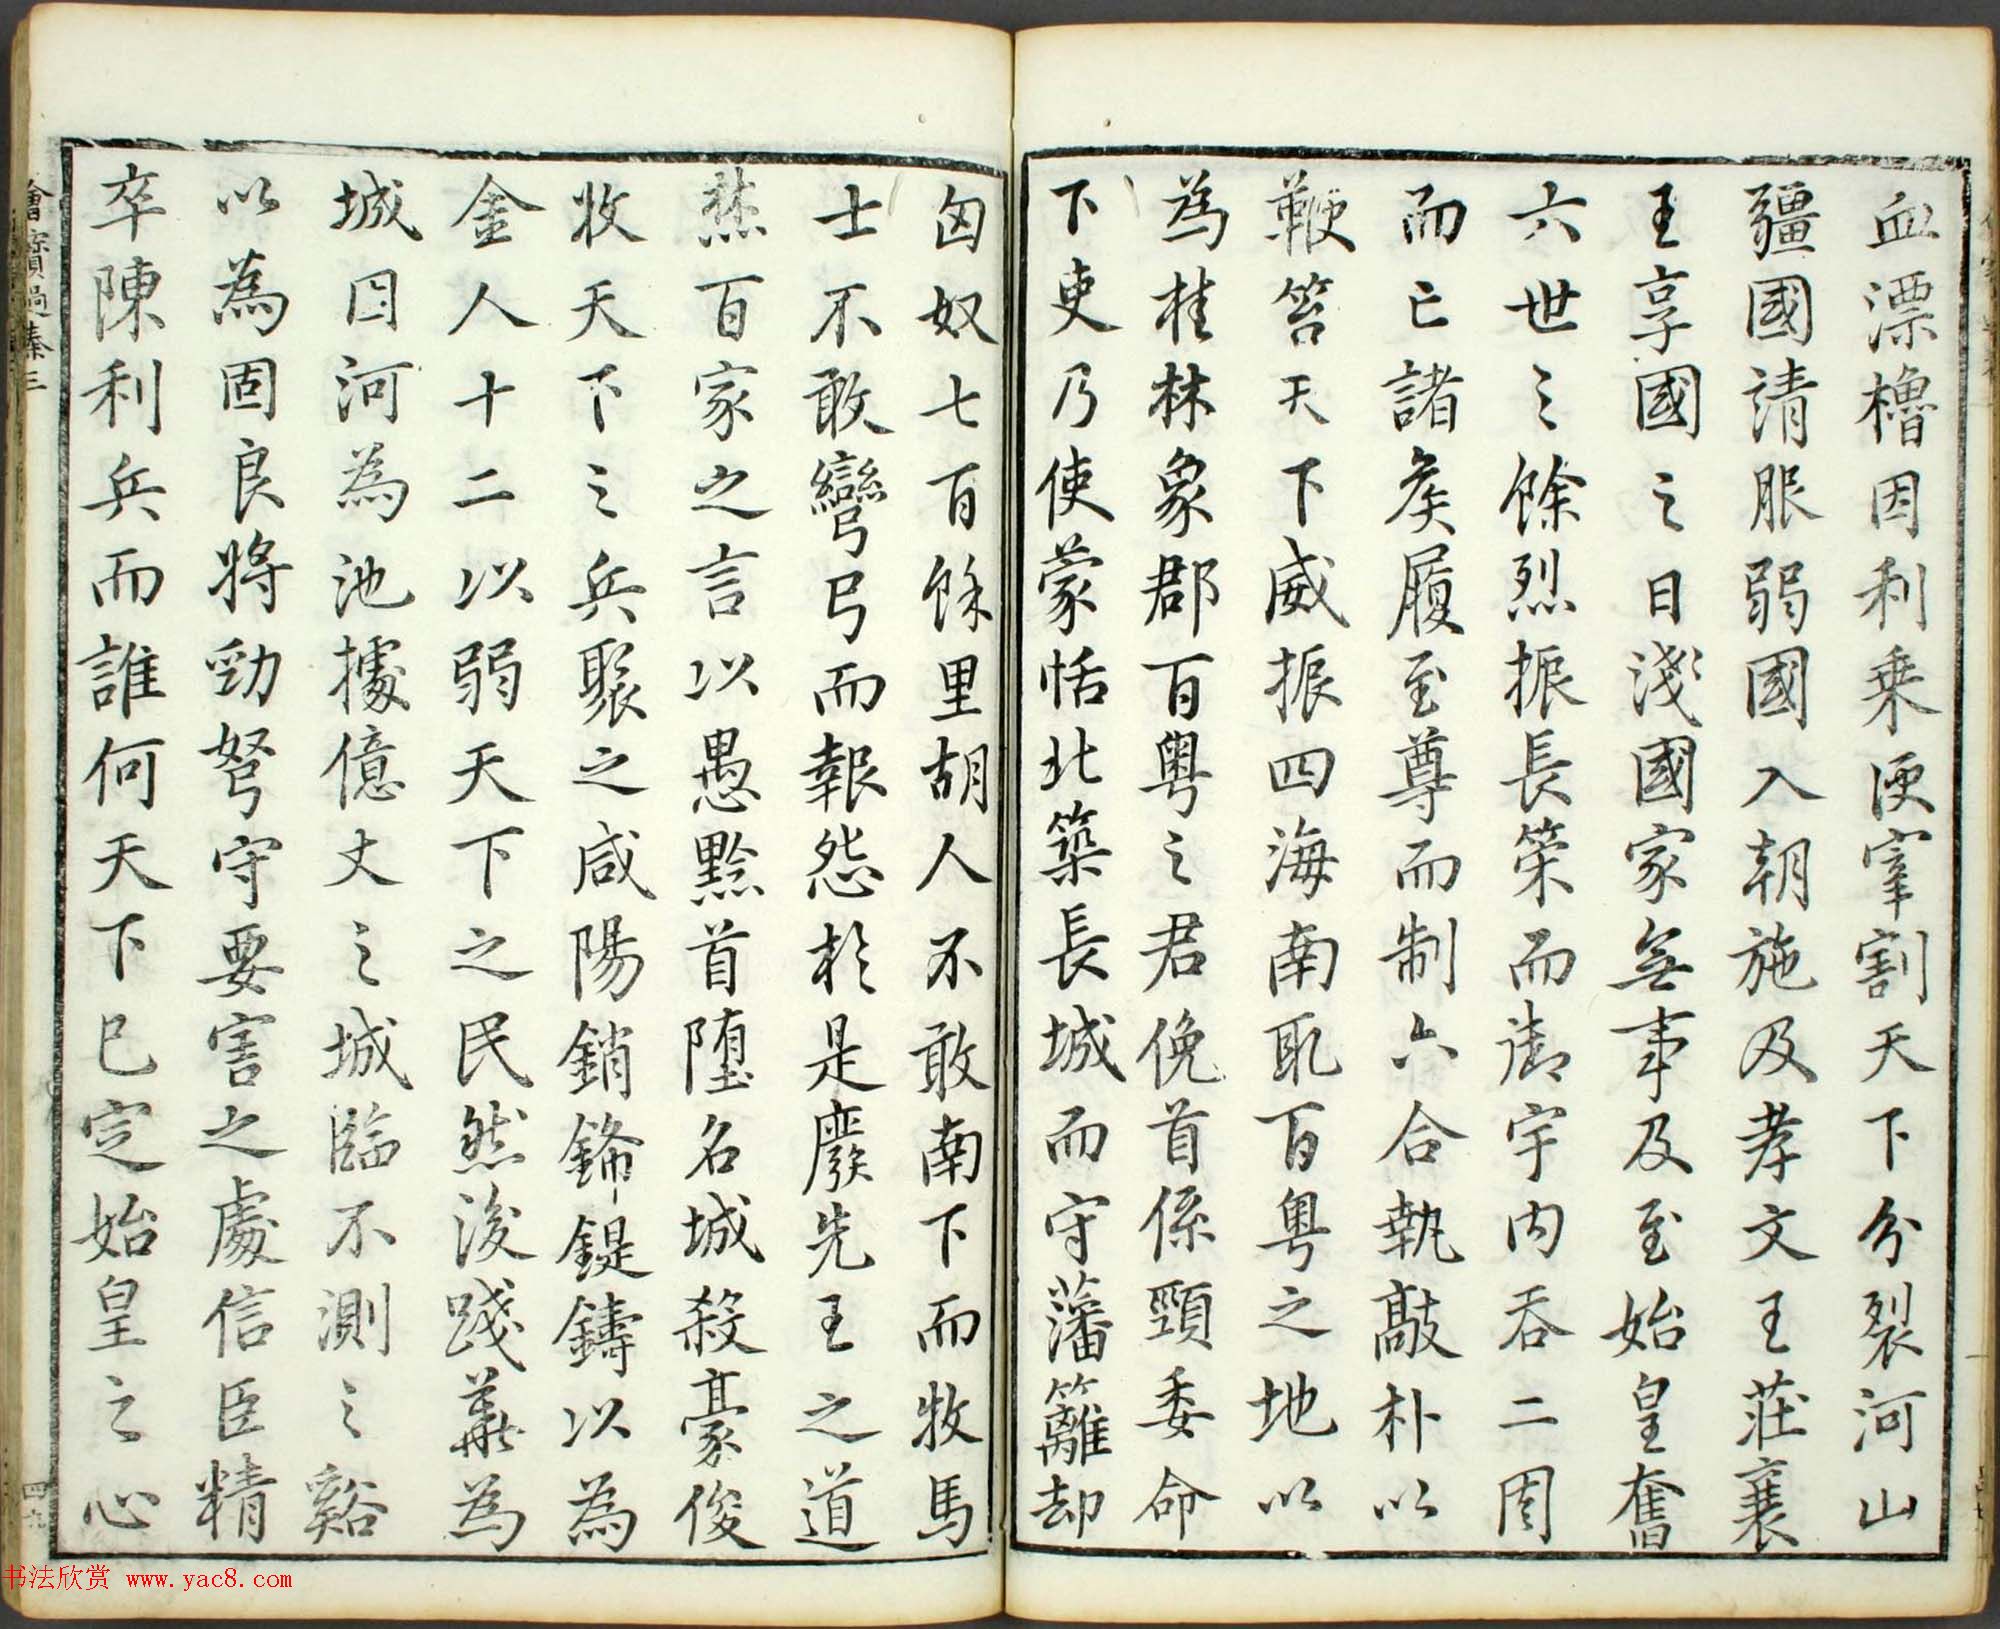 血漂櫓因利乗便宰割天下分裂河山
疆國請服弱國入朝施及孝文王莊襄
王享國之日淺國家無事及至始皇奮
六世之餘烈振長策而御宇内吞二周
而亡諸矦履至尊而制六合執敲朴以
鞭笞天下威振四海南取百粤之地以
為桂林象郡百粤之君俛首係頸委命
下吏乃使蒙恬北築長城而守藩籬却
匈奴七百餘里胡人不敢南下而牧馬
士不敢彎弓而報怨於是廢先王之道
焚百家之言以愚黔首堕名城殺豪俊
收天下之兵聚之咸陽銷鋒鍉鑄以為
金人十二以弱天下之民然後踐華為
城因河為池據億丈之城臨不測之谿
以為固良將勁弩守要害之處信臣精
卒陳利兵而誰何天下已定始皇之心
書法欣赏 www.yac8.com